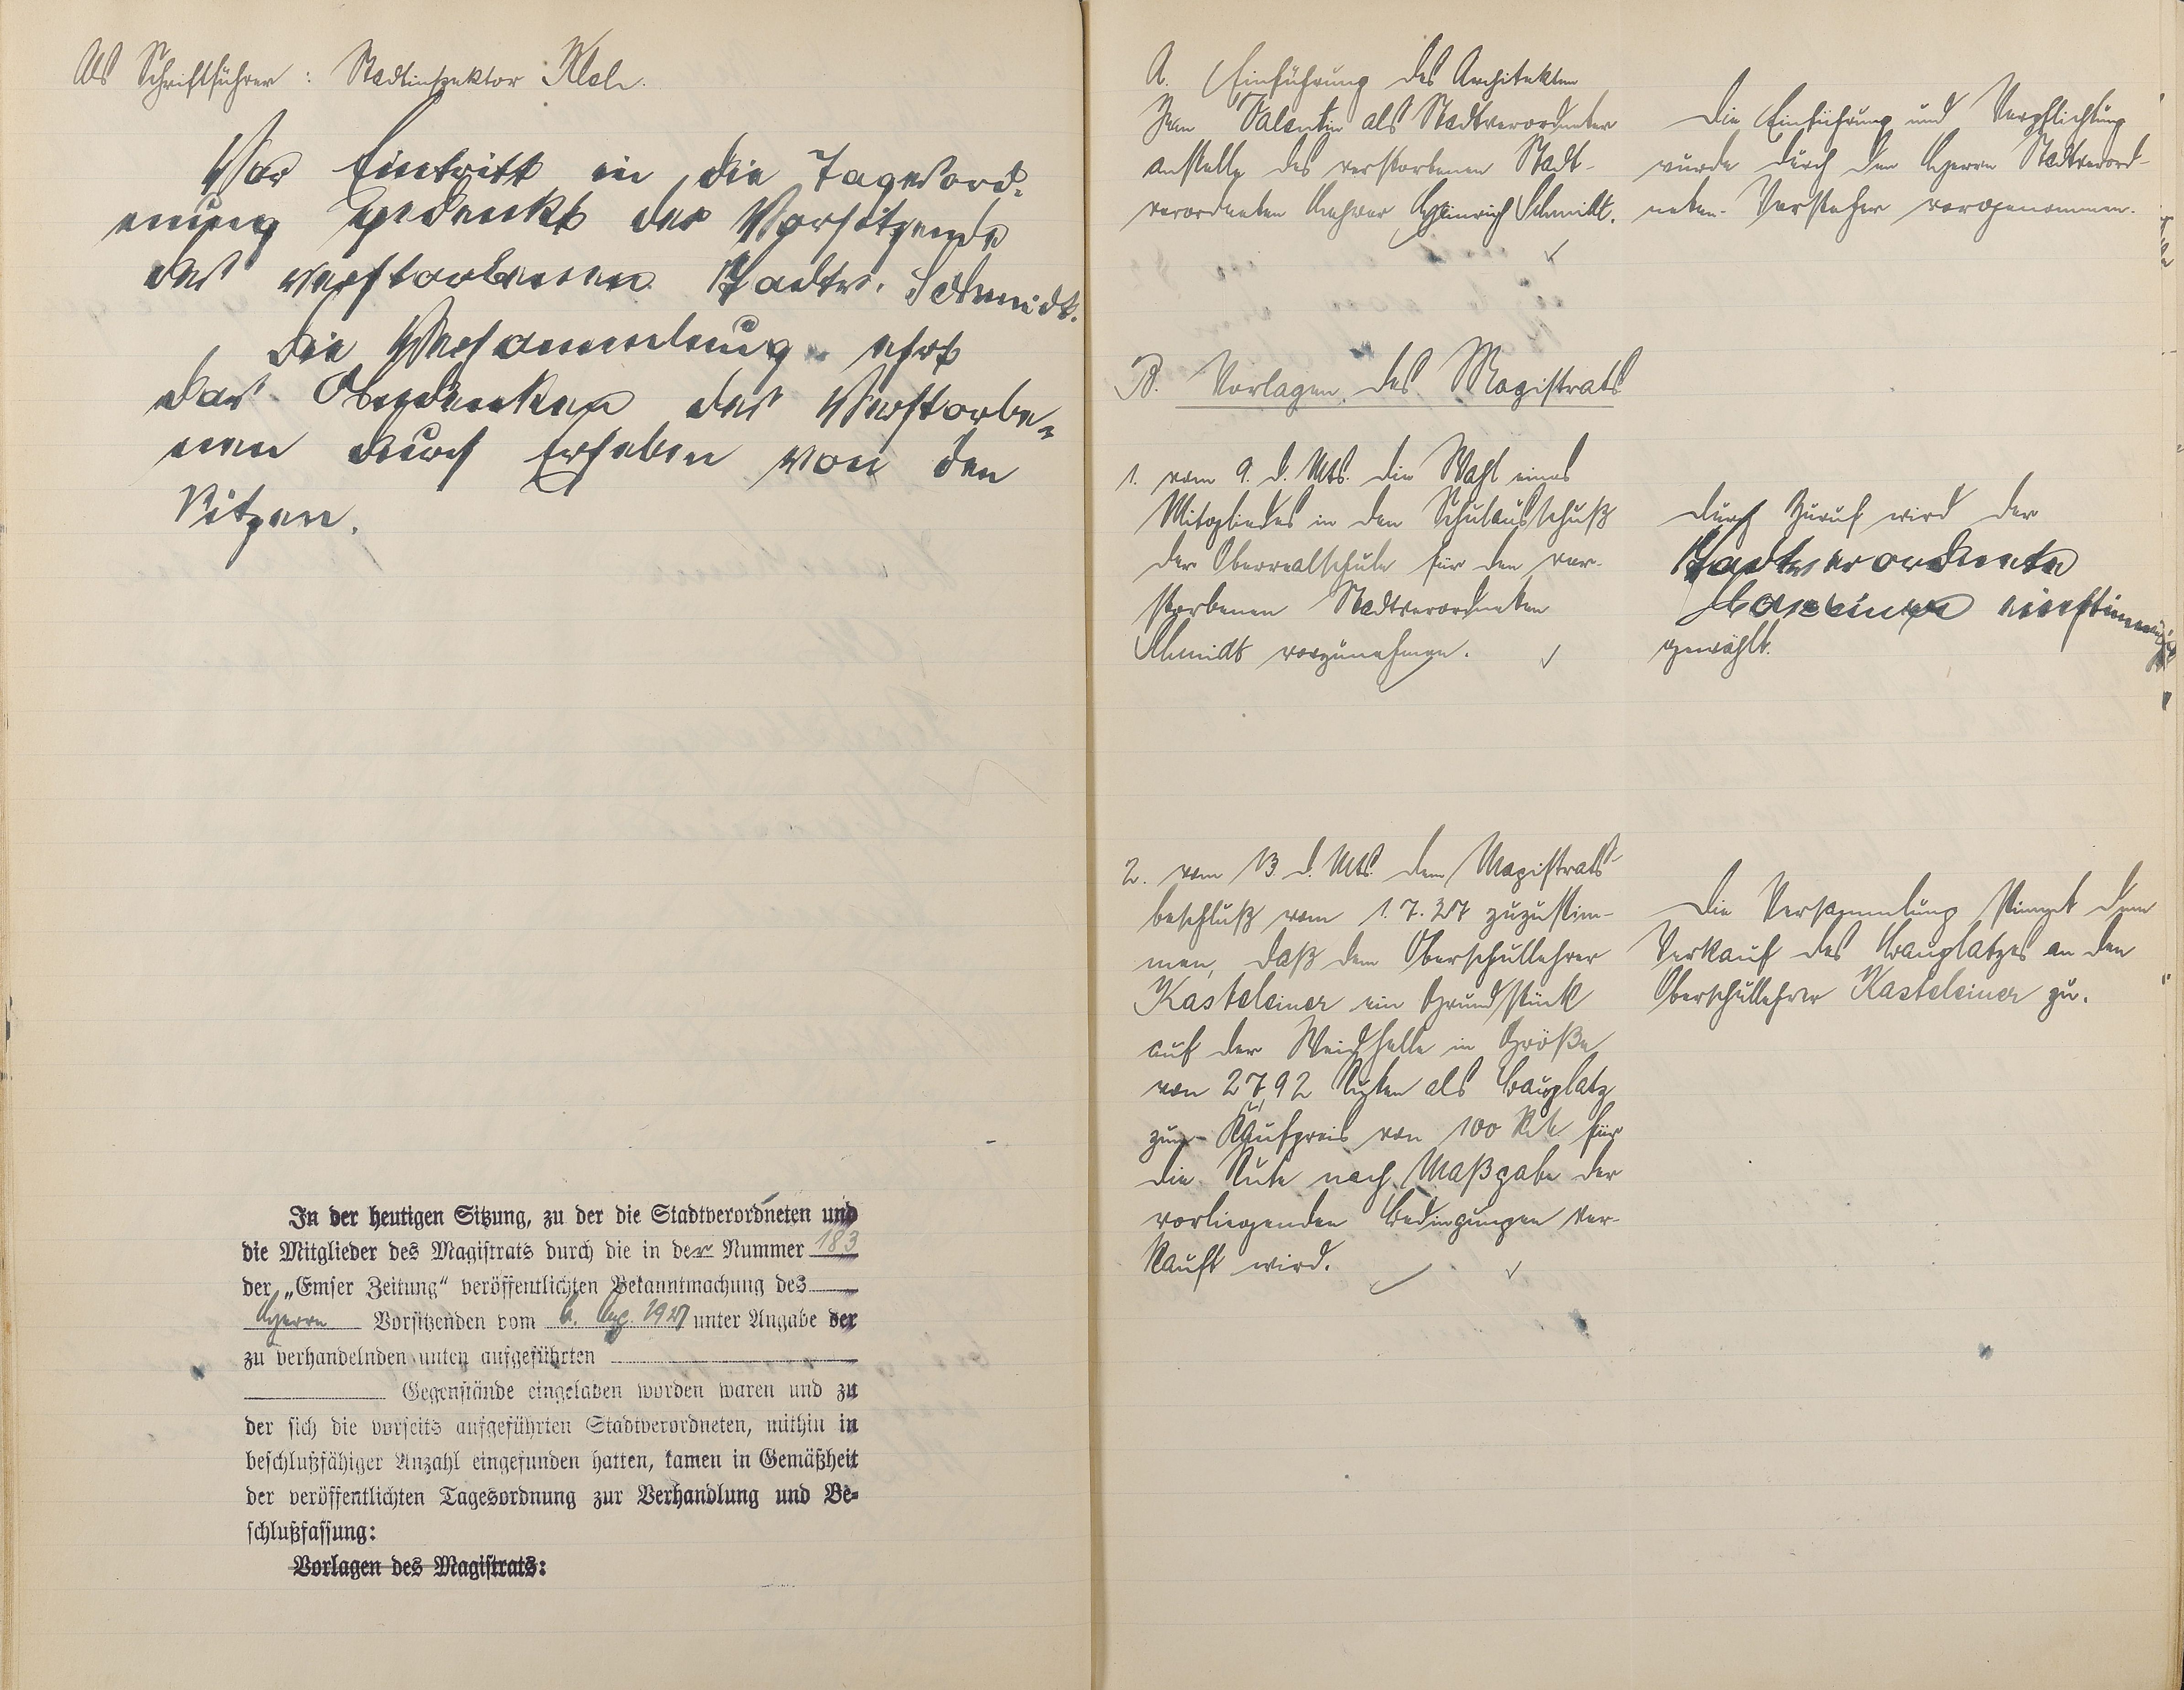 Als Schriftführer: Stadtinspektor Kleh.
Vor Eintritt in die Tagesord-
nung gedenkt der Vorsitzende
des verstorbenen Stadtv. Schmidt.
Die Versammlung ehrt
das Andenken des Verstorbe-
nen durch Erheben von den
Sitzen.
In der heutigen Sitzung, zu der die Stadtverordneten und
die Mitglieder des Magistrats durch die in der Nummer 183
der „Emser Zeitung“ veröffentlichten Bekanntmachung des
Herrn Vorsitzenden vom 6. Aug. 1927 unter Angabe der
zu verhandelnden unten aufgeführten
Gegenstände eingeladen worden waren und zu
der sich die vorseits aufgeführten Stadtverordneten, mithin in
beschlußfähiger Anzahl eingefunden hatten, kamen in Gemäßheit
der veröffentlichten Tagesordnung zur Verhandlung und Be-
schlußfassung:
Vorlagen des Magistrats:
A. Einführung des Architekten
Jean Valentin als Stadtverordneter
anstelle des verstorbenen Stadt-
verordneten Lehrer Heinrich Schmidt.
Die Einführung und Verpflichtung
wurde durch den Herrn Stadtverord-
neten-Vorsteher vorgenommen.
B. Vorlagen des Magistrats
1. vom 9. d. Mts. die Wahl eines
Mitgliedes in den Schulausschuß
der Oberrealschule für den ver-
storbenen Stadtverordneten
Schmidt vorzunehmen.
Durch Zuruf wird der
Stadtverordnete
einstimmig
gewählt.
2. vom 13. d. Mts. dem Magistrats-
beschluß vom 1.7.27 zuzustim-
men, daß dem Oberschullehrer
Kasteleiner ein Grundstück
auf der Weidhelle in Größe
von 27,92 Ruten als Bauplatz
zum Kaufpreis von 100 RM für
die Rute nach Maßgabe der
vorliegenden Bedingungen ver-
kauft wird.
Die Versammlung stimmt dem
Verkauf des Bauplatzes an den
Oberschullehrer Kasteleiner zu.